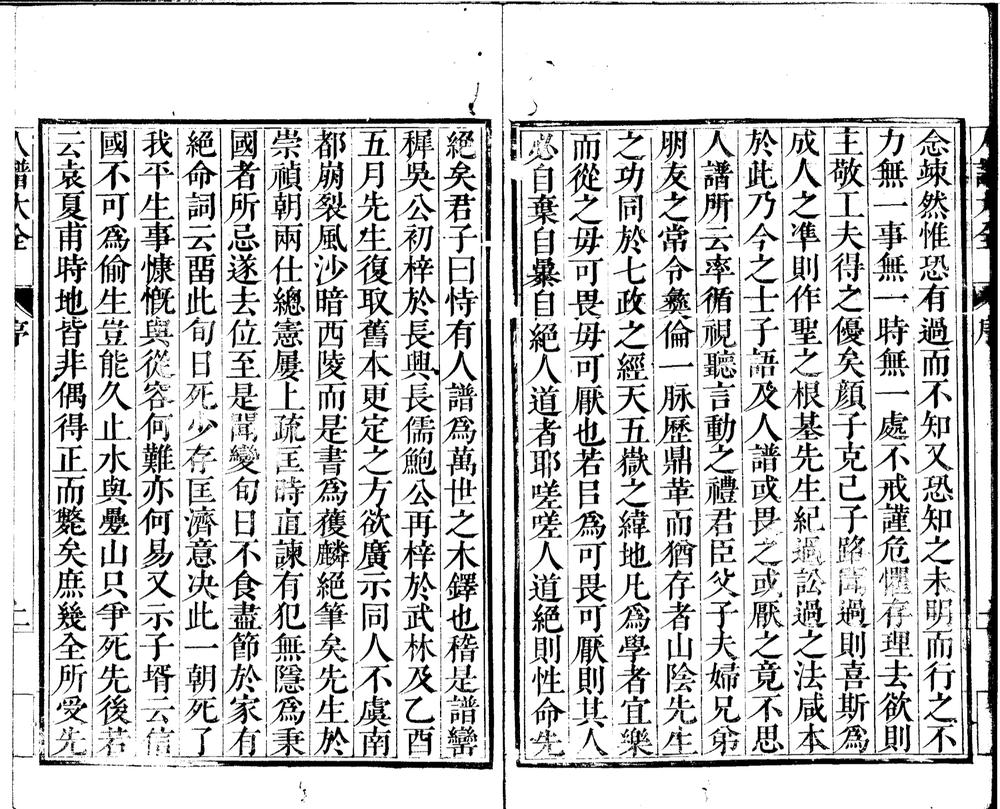 念竦然惟恐有過而不知又恐知之未明而行之不
力無一事無一時無一處不戒謹危懼存理去欲則
主敬工夫得之優矣顔子克己子路聞過則喜斯為
成人之凖則作聖之根基先生紀過訟過之法咸本
於此乃今之士子語及人譜或畏之或厭之竟不思
人譜所云率循視聽言動之禮君臣父子夫婦兄弟
朋友之常令彝倫一脉歷鼎革而猶存者山陰先生
之功同於七政之經天五嶽之緯地凡為學者宜樂
而從之毋可畏毋可厭也若㠯為可畏可厭則其人
必自棄自暴自絕人道者耶嗟嗟人道絕則性命先
絕矣君子曰恃有人譜為萬世之木鐸也稽是譜巒
穉吳公初梓於長興長儒鮑公再梓於武林及乙酉
五月先生復取舊本更定之方欲廣示同人不虞南
都崩裂風沙暗西陵而是書為獲麟絕筆矣先生於
崇禎朝兩仕總憲屢上疏匡時直諫有犯無隱為秉
國者所忌遂去位至是聞變旬日不食盡節於家有
絕命詞云畱此旬日死少存匡濟意决此一朝死了
我平生事慷慨與從容何難亦何易又示子壻云信
國不可為偷生豈能久止水與疊山只爭死先後若
云袁夏甫時地皆非偶得正而斃矣庶幾全所受先
人譜大全
序